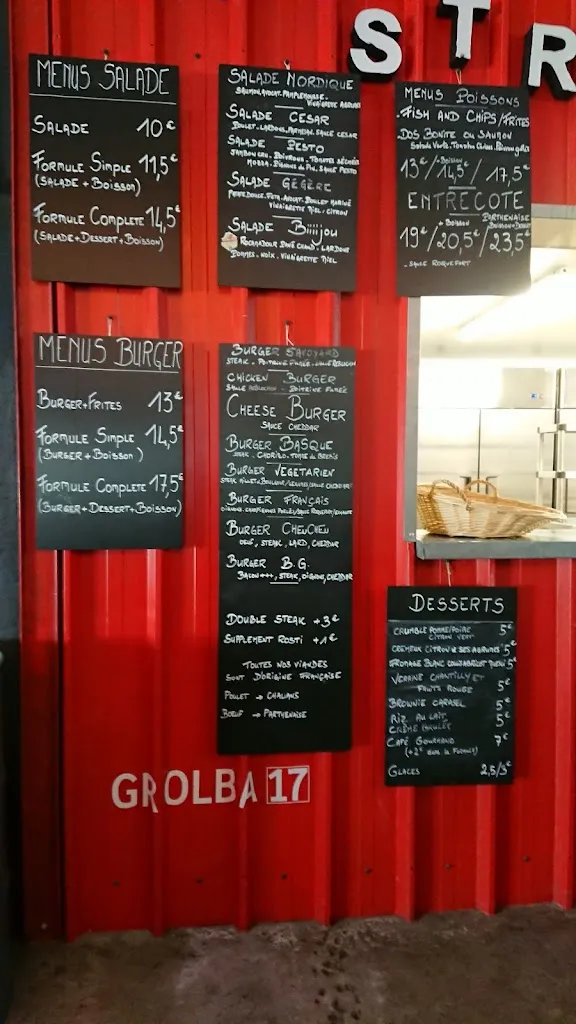 STR
MENUS SALADE
SALADE 10€
FORMULE SIMPLE 11,5€
(SALADE + BOISSON)
FORMULE COMPLETE 14,5€
(SALADE+DESSERT+BOISSON)
SALADE NORDIQUE
SAUMON, AVOCAT, PAMPLEMOUSE,
VINAIGRETTE AGRUMES
SALADE CESAR
POULET, LARDONS, PARMESAN, SAUCE CESAR
SALADE PESTO
JAMBON CRU, POIVRONS, TOMATES SÉCHÉES
MOZZA, PIGNONS DE PIN, SAUCE PESTO
SALADE GÉGÈRE
FETA, AVOCAT, POULET MARINÉ
VINAIGRETTE MIEL-CITRON
SALADE Biiijou
ROCAMADOUR PANÉ CHAUD, LARDONS
POMMES, NOIX, VINAIGRETTE MIEL
MENUS POISSONS
FISH AND CHIPS/FRITES
DOS BONITE OU SAUMON
13€/14,5€/17,5€
+ BOISSON
ENTRECOTE
PARTHENAISE
+ BOISSON BOISSON+DESSERT
19€/20,5€/23,5€
- SAUCE ROQUEFORT
MENUS BURGER
BURGER+FRITES 13€
FORMULE SIMPLE 14,5€
(BURGER + BOISSON)
FORMULE COMPLETE 17,5€
(BURGER+DESSERT+BOISSON)
BURGER SAVOYARD
STEAK, POITRINE FUMÉE, SAUCE REBLOCHON
CHICKEN BURGER
SAUCE REBLOCHON - POITRINE FUMÉE
CHEESE BURGER
SAUCE CHEDDAR
BURGER BASQUE
STEAK, CHORIZO, TOMME DE BREBIS
BURGER VEGETARIEN
BURGER FRANÇAIS
BURGER CHEUCHEU
OEUF, STEAK, LARD, CHEDDAR
BURGER B.G.
BACON+++, STEAK, OIGNON, CHEDDAR
DOUBLE STEAK +3€
SUPPLEMENT ROSTI +1€
TOUTES NOS VIANDES
SONT D'ORIGINE FRANÇAISE
POULET → CHALLANS
BOEUF → PARTHENAISE
DESSERTS
CRUMBLE POMME/POIRE 5€
CITRON VERT
CREMEUX CITRON & SES AGRUMES 5€
FROMAGE BLANC COULIS ABRICOT 5€
VERRINE CHANTILLY ET
FRUITS ROUGE 5€
BROWNIE CARAMEL 5€
RIZ AU LAIT 5€
CRÈME BRULÉE
CAFÉ GOURMAND 7€
(+2€ DANS LA FORMULE)
GLACES 2,5/3€
GROLBA 17